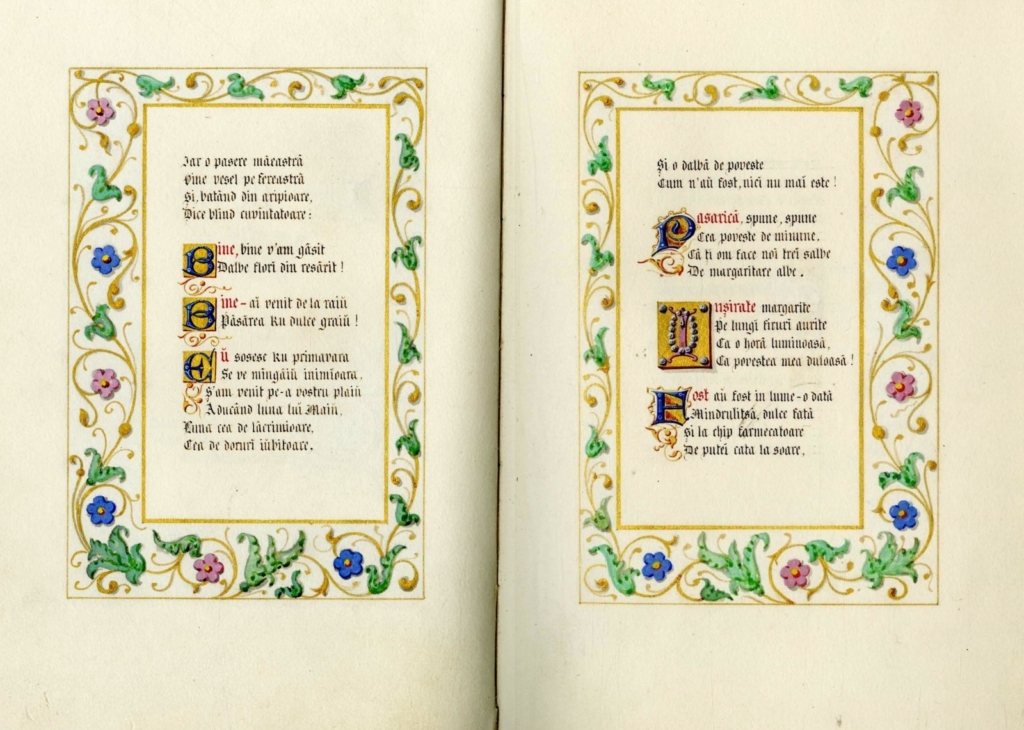 Iar o pasere măeastră
Vine vesel pe fereastră
Și, batând din aripioare,
Dice blînd cuvintatoare:
Bine, bine v'am găsit
Dalbe flori din resărit!
Bine-ai venit de la raiŭ
Păsărea ku dulce graiŭ!
Eŭ sosesc ku primavara
Se ve mîngăiŭ inimioara.
S'am venit pe-a vostru plaiŭ
Aducând luna lui Maiŭ,
Luna cea de lăcrimioare,
Cea de doruri iŭbitoare.
Și o dalbă de poveste
Cum n'aŭ fost, nici nu maĭ este!
Pasarică, spune, spune
Cea poveste de minune,
Că ți om face noi trei salbe
De margaritare albe.
Inșirate margarite
Pe lungi firuri aurite
Ca o horă luminoasă,
Ca povestea mea duĭoasă!
Fost aŭ fost in lume-o dată
Mindrulița, dulce fată
Și la chip farmecatoare
De puteĭ cata la soare,